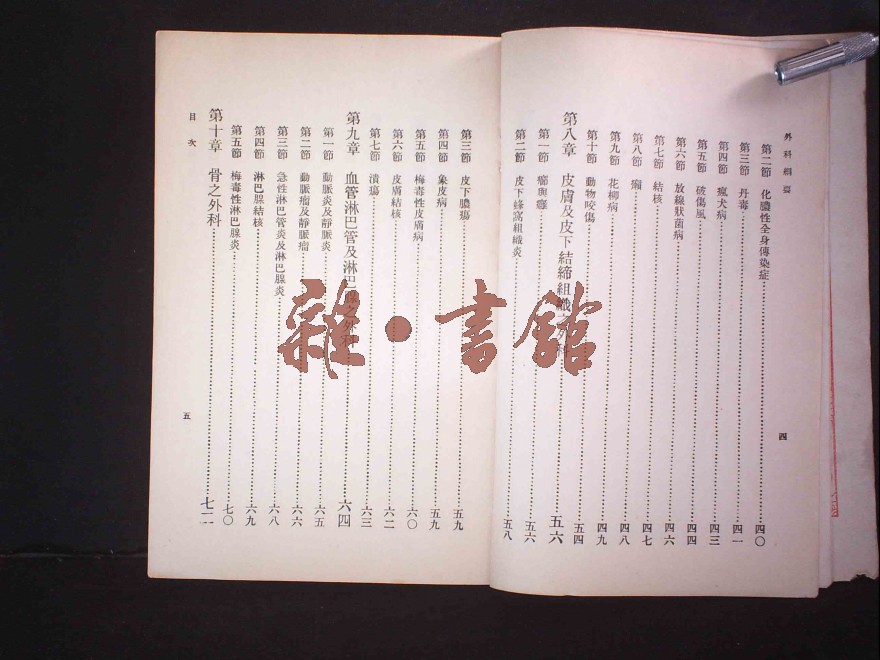 外科綱要
第二節 化膿性全身傳染症 四〇
第三節 丹毒 四一
第四節 瘋犬病 四三
第五節 破傷風 四四
第六節 放線狀菌病 四六
第七節 結核 四七
第八節 癩 四八
第九節 花柳病 四九
第十節 動物咬傷 五四
第八章 皮膚及皮下結締組織之外科 五六
第一節 癤與癰 五六
第二節 皮下蜂窩組織炎 五八
四
第三節 皮下膿瘍 五九
第四節 象皮病 五九
第五節 梅毒性皮膚病 六〇
第六節 皮膚結核 六二
第七節 潰瘍 六三
第九章 血管淋巴管及淋巴腺之外科 六四
第一節 動脈炎及靜脈炎 六五
第二節 動脈瘤及靜脈瘤 六六
第三節 急性淋巴管炎及淋巴腺炎 六八
第四節 淋巴腺結核 六九
第五節 梅毒性淋巴腺炎 七〇
第十章 骨之外科 七二
目次
五
雜·書館